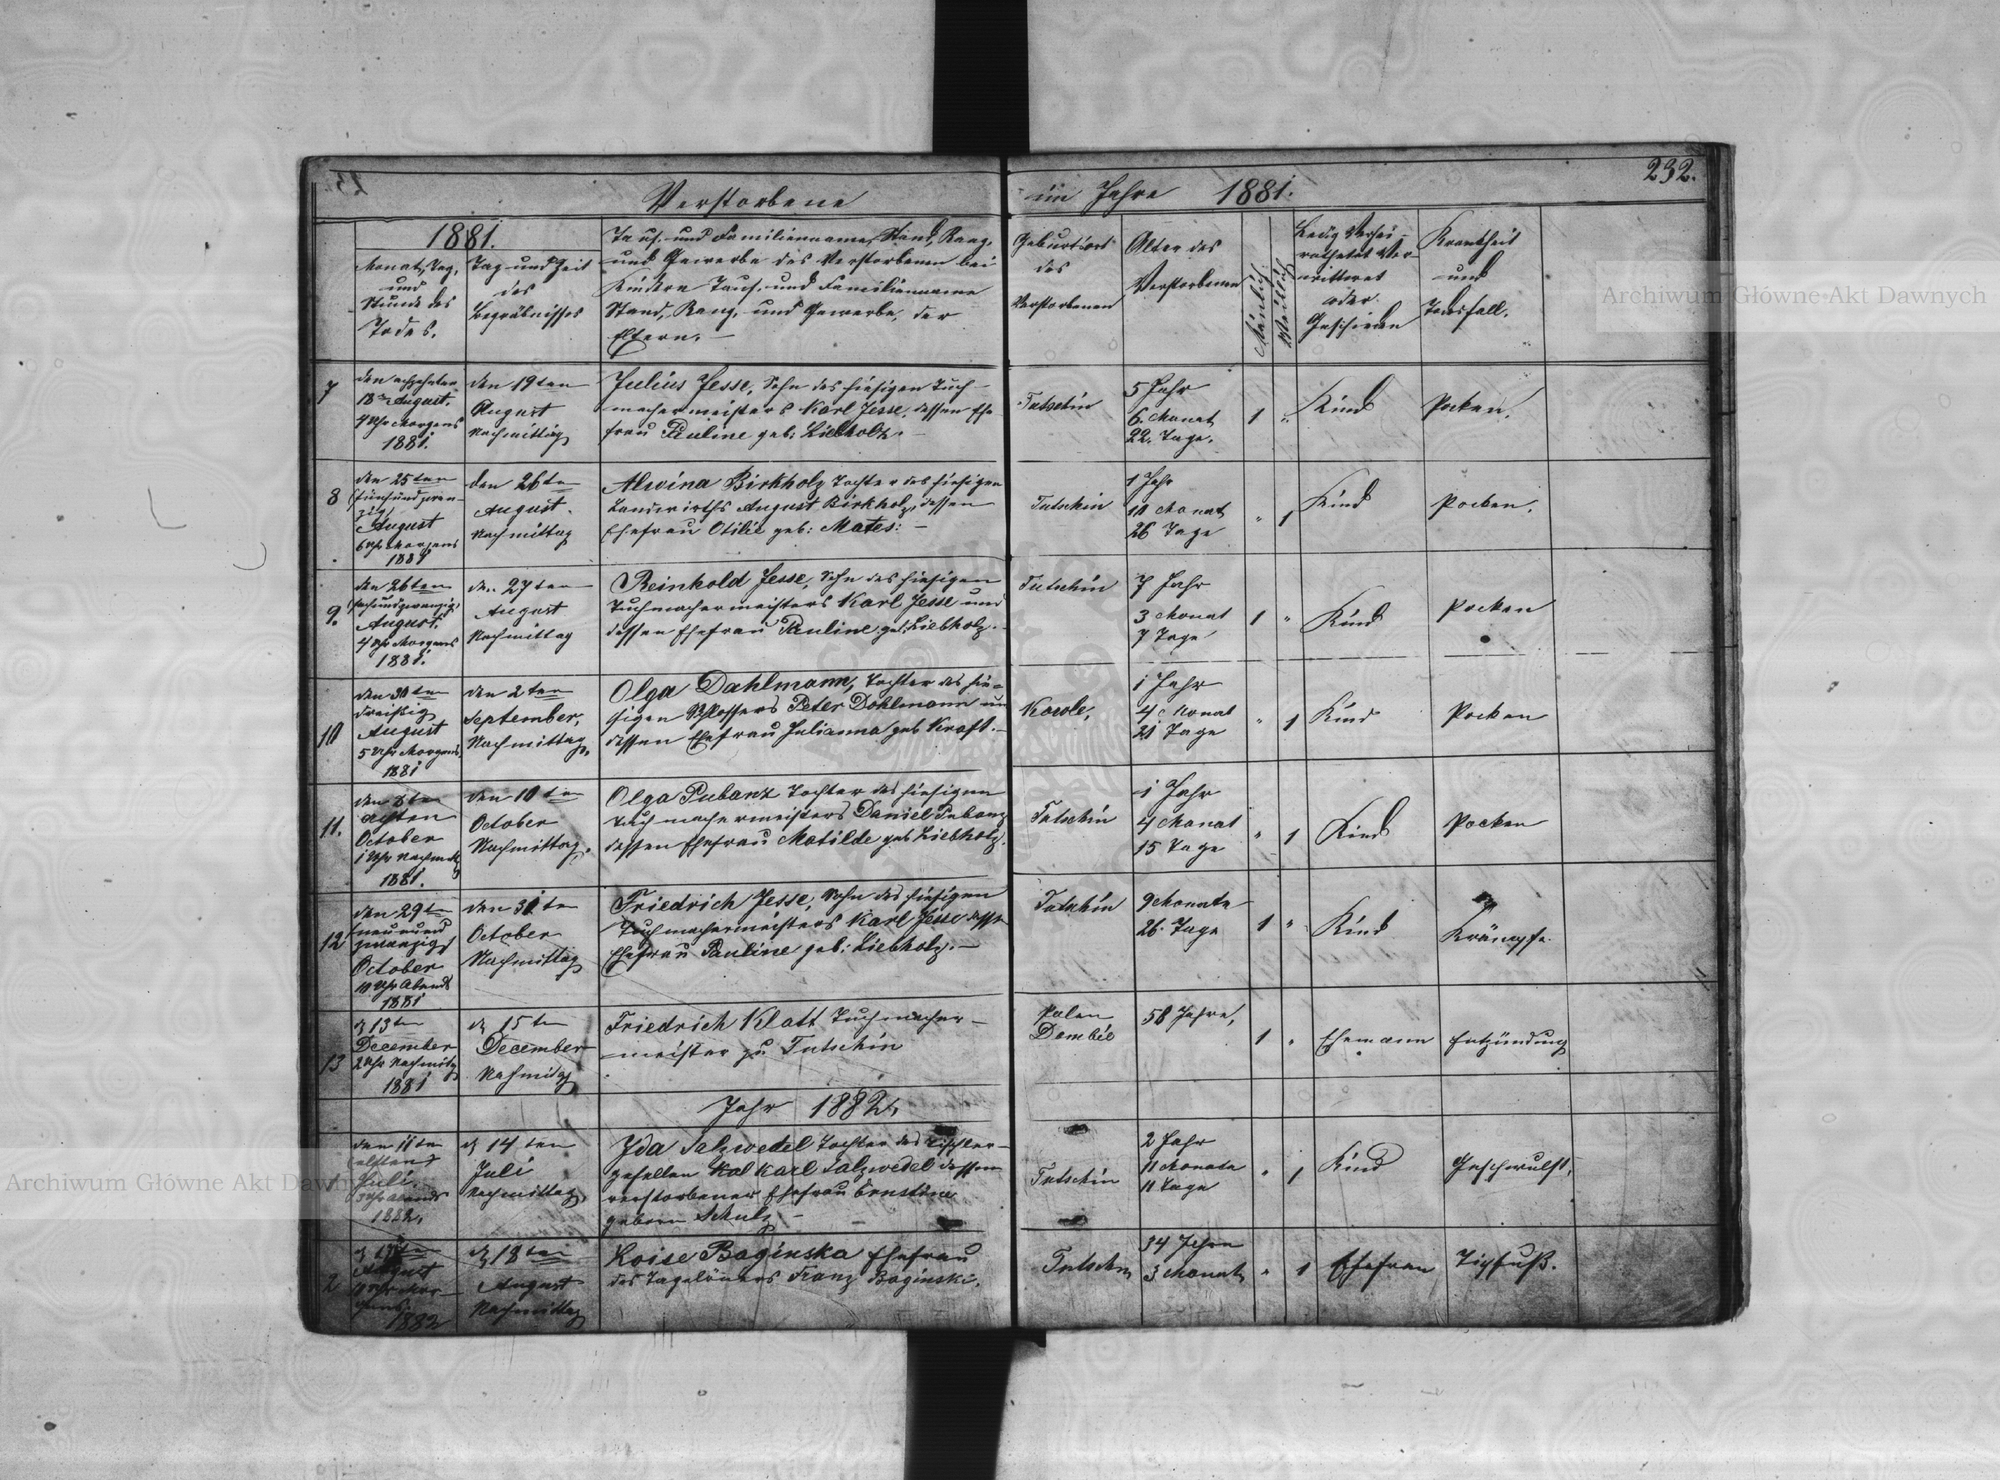 232.
Verstorbene im Jahre 1881.
1881.
Monat, Tag,
und
Stunde des
Todes.
Tag und Zeit
des
Begräbnisses
Tauf- und Familienname, Stand, Rang,
und Gewerbe des Verstorbenen bei
Kindern Tauf- und Familienname
Stand, Rang, und Gewerbe, der
Eltern. —
Geburtsort
des
Verstorbenen
Alter des
Verstorbenen
Mänlich.
Weiblich
Ledig Verhei-
rathetet Ver-
wittwet
oder
Geschieden
Krankheit
und
Todesfall.
7
den achzehnten
18ten August.
4 Uhr Morgens
1881.
den 19ten
August
Nachmittag
Julius Jesse, Sohn des hiesigen Tuch-
machermeisters Karl Jesse, dessen Ehe
frau Pauline geb: Liebholz. —
Tutschin
5 Jahr
6. Monat
22. Tage.
1 "
Kind
Pocken.
8
den 25ten
fünfundzwan-
zig
August
6 Uhr Morgens
1881
den 26ten
August.
Nachmittag
Alwina Birkholz Tochter des hiesigen
Landwirths August Birkholz, dessen
Ehefrau Otilie geb: Mates: —
Tutschin
1 Jahr
10 Monat
26 Tage
" 1
Kind
Pocken.
9.
den 26ten
sechsundzwanzig,
August.
4 Uhr Morgens
1881.
den 27ten
August
Nachmittag
Reinhold Jesse, Sohn des hiesigen
Tuchmachermeisters Karl Jesse und
dessen Ehefrau Pauline geb. Liebholz. —
Tutschin
7 Jahr
3 Monat
7 Tage
1 "
Kind
Pocken
10
den 30ten
dreißig
August
5 Uhr Morgens,
1881
den 2ten
September,
Nachmittag.
Olga Dahlmann, Tochter des hie-
sigen Schlossers Peter Dahlmann un
dessen Ehefrau Julianna geb Kraft. —
Kowle,
1 Jahr
4 Monat
21 Tage
" 1
Kind
Pocken
11.
den 8ten
achten
October
1 Uhr Nachmitt
1881.
den 10ten
October
Nachmittag,
Olga Pubanz Tochter des hiesigen
Tuchmachermeisters Daniel Pubanz
dessen Ehefrau Matilde geb Liebholz.
Tutschin
1 Jahr
4 Monat
15 Tage
" 1
Kind
Pocken
12
den 29ten
neunund
zwanzigs
October
10 Uhr Abends
1881
den 31ten
October
Nachmittag
Friedrich Jesse, Sohn des hiesigen
Tuchmachermeisters Karl Jesse dessen
Ehefrau Pauline geb: Liebholz. —
Tutschin
9 Monate
26 Tage
1 "
Kind
Krämpfe.
13
d 13ten
December
2 Uhr Nachmittg
1881
d 15ten
December
Nachmittg
Friedrich Klatt Tuchmacher-
meister zu Tutschin
Polen
Dembie
58 Jahre,
1 "
Ehemann
Entzündung
Jahr 1882,
1
den 11ten
elften
Juli
3 Uhr Abends
1882,
d 14ten
Juli
Nachmittag
Ida Salzwedel Tochter des Tischler-
gesellen Kal Karl Salzwedel dessen
verstorbener Ehefrau Ernstine
geborn Schulz —
Tutschin
2 Jahr
11 Monate
11 Tage
" 1
Kind
Geschwulst,
2
August
1882
d 18ten
August
Nachmittag
Loise Baginska Ehefrau
des Tagelöners Franz Baginski.
Tutschin
34 Jahre
3 Monat
" 1
Ehefrau
Tiphuß.
Archiwum Główne Akt Dawnych
Archiwum Główne Akt Dawnych